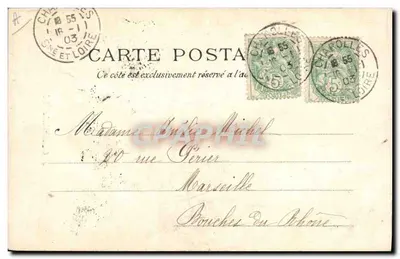 CHAROLLES
18 55
16 -1
03
S-NE ET LOIRE
CARTE POSTA
Ce côté est exclusivement réservé à l'a
CHAROLLES
55
03
LOIRE
5
CHAROLLES
18 55
03
LOIRE
5
Madame Julie Michel
20 rue Périer
Marseille
Bouches du Rhône